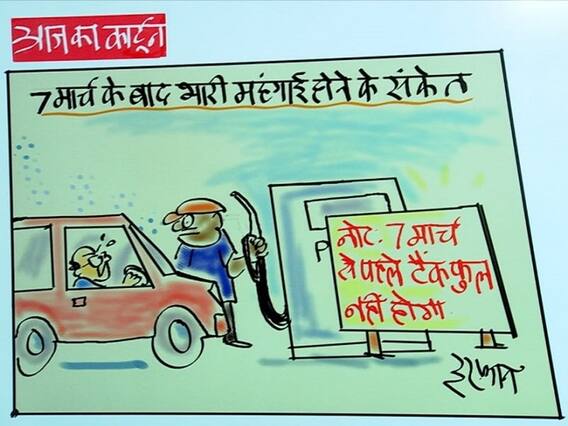 आज का कार्टून
7 मार्च के बाद भारी महंगाई होने के संकेत
P
नोट. 7 मार्च
से पहले टैंक फुल
नहीं होगा
इरफान